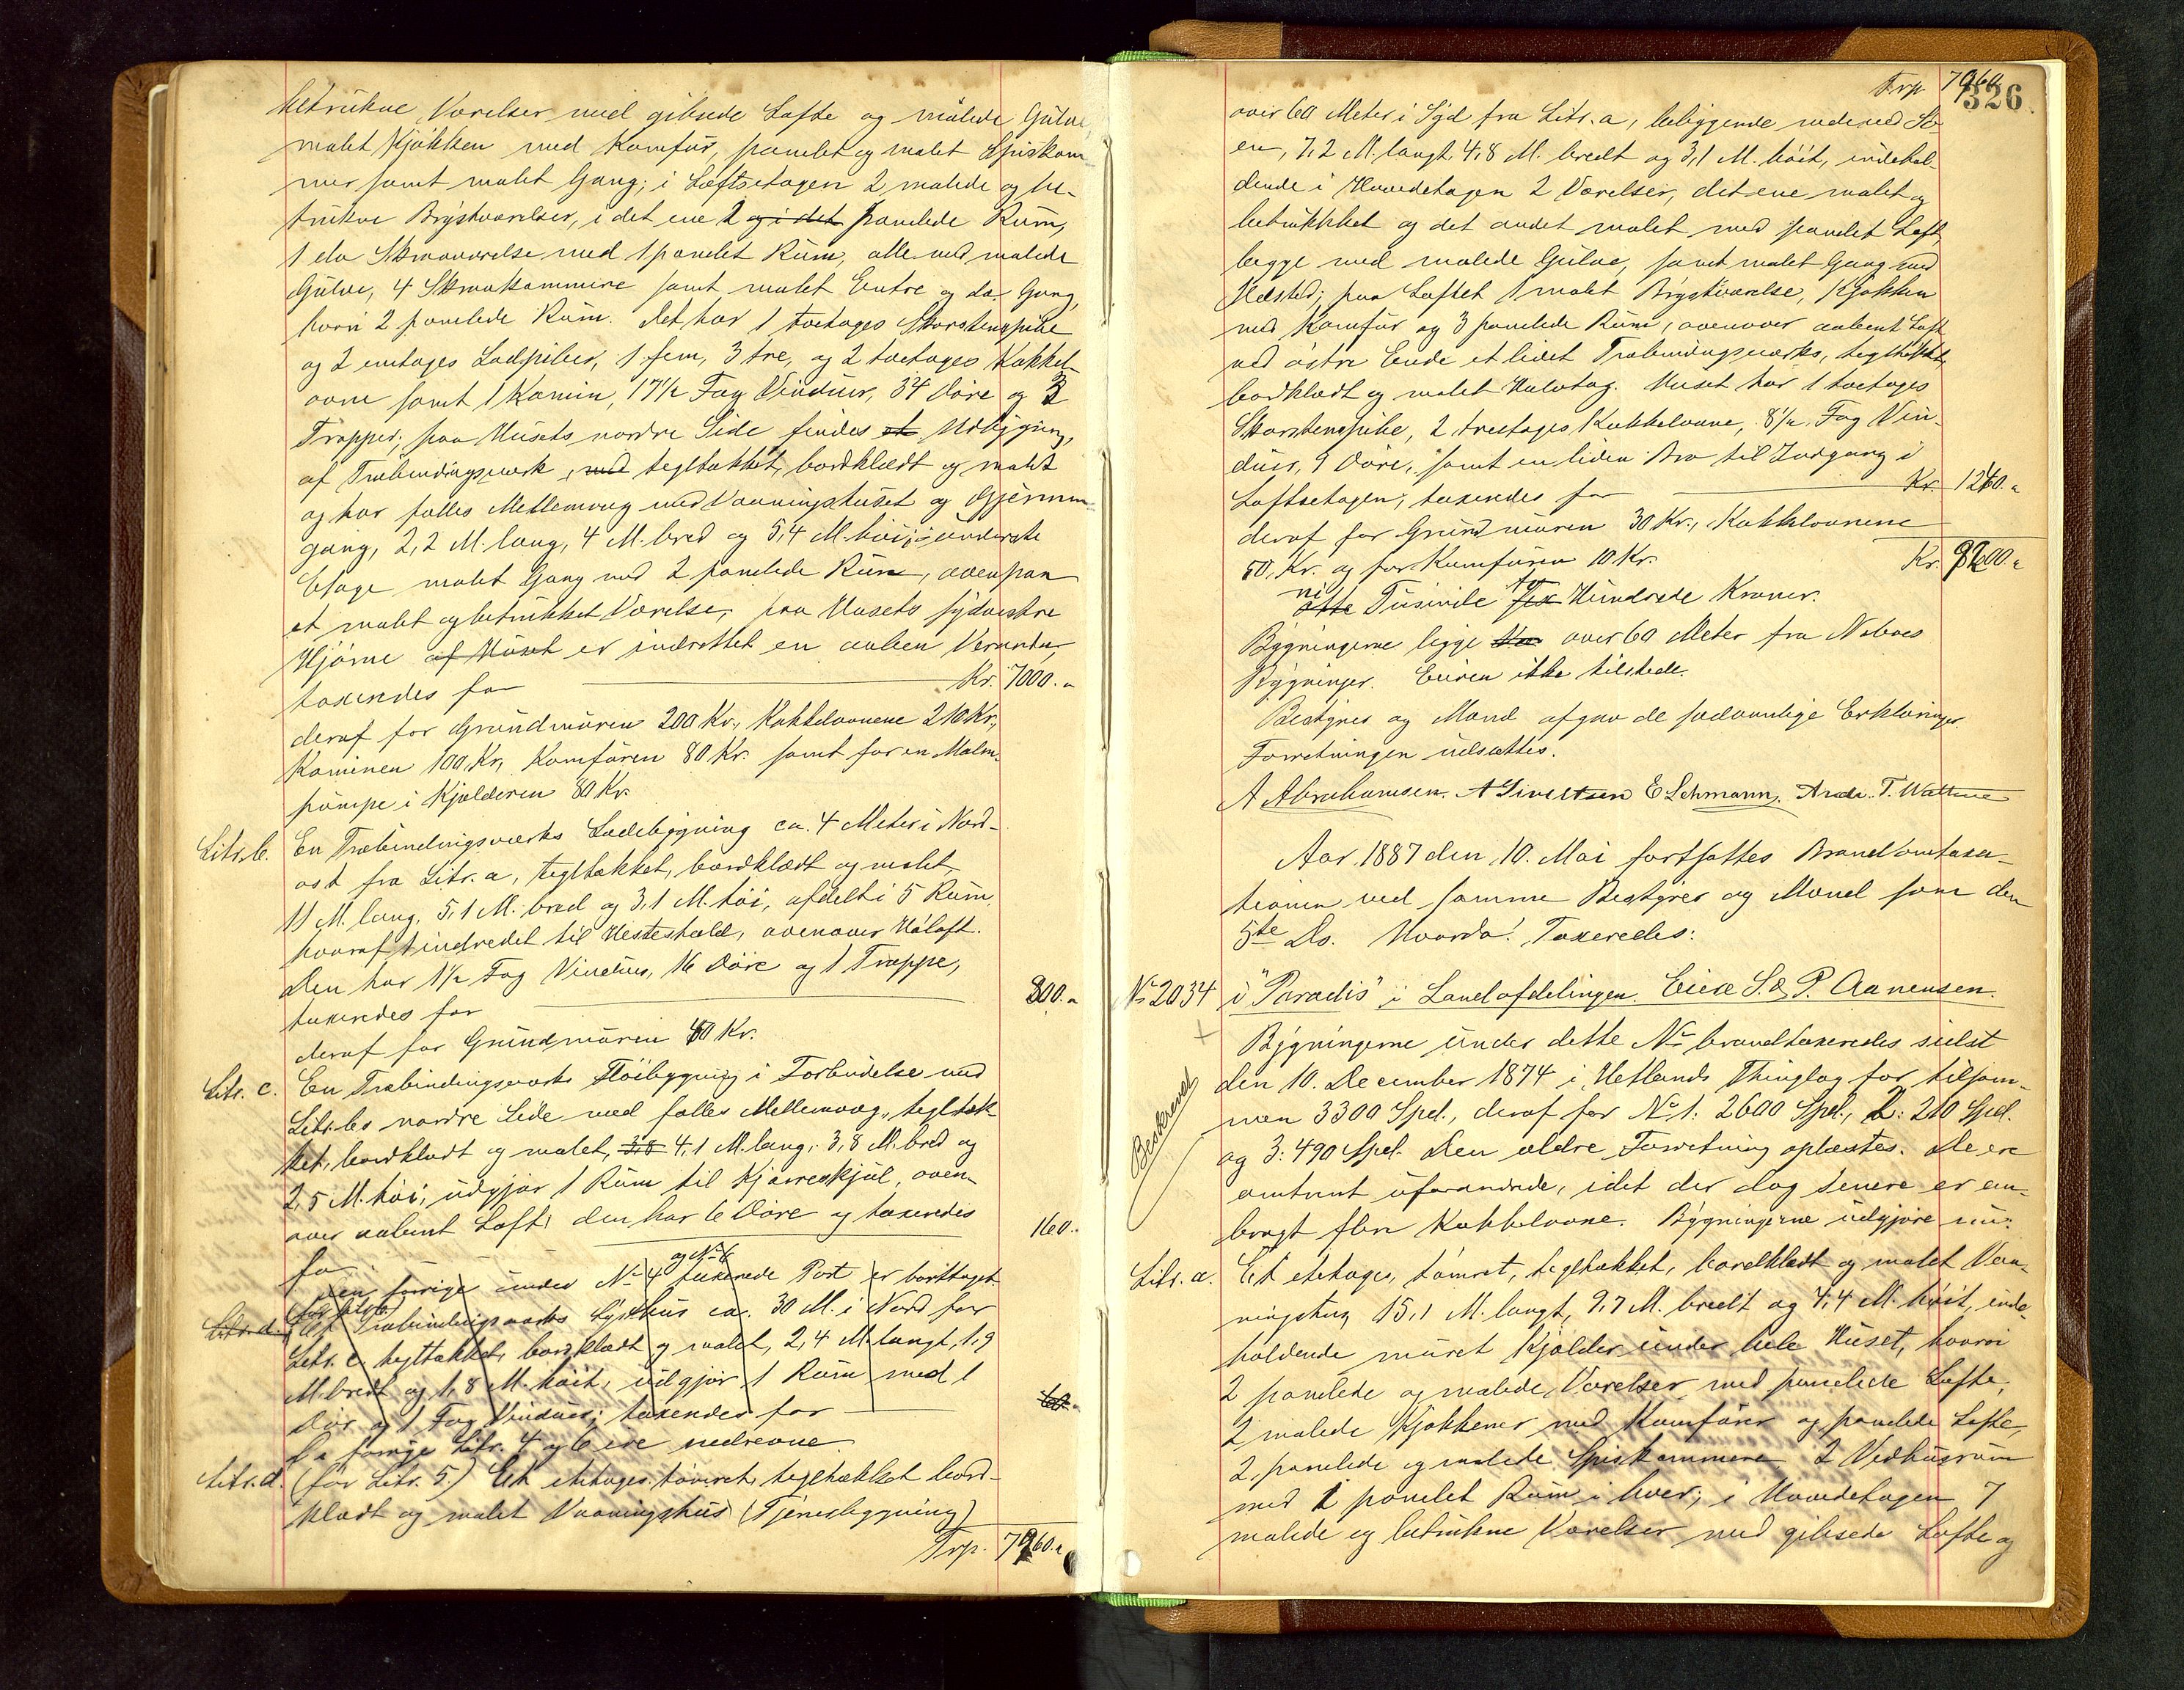 betrukne Værelser med gibsede Lofte og malede Gulve,
malet Kjøkken med Komfur, panelet og malet Spiskam-
mer samt malet Gang; i Loftsetagen 2 malede og be-
trukne Brystværelser, i det ene 2 og i det panelede Rum,
1 do Skraaværelse med 1 panelet Rum, alle med malede
Gulve, 4 Skraakammere samt malet Entre og do. Gang,
hvori 2 panelede Rum. Det har 1 toetages Skorstenspibe
og 2 enetages Ladpiber, 1 fem, 3 tre, og 2 toetages Kakkel-
ovne samt 1 Kamin, 17½ Fag Vinduer, 34 Døre og 3
Trapper; paa Husets nordre Side findes et Udbygning,
af Træbindingsværk, med tegltækket, bordklædt og malet
og har fælles Mellemvæg med Vaaningshuset og Gjennem-
gang, 2,2 M. lang, 4 M. bred og 5,4 M. høi; i underste
Etage malet Gang med 2 panelede Rum, ovenpaa
et malet og betrukket Værelse; paa Husets sydvestre
Hjørne af Huset er indrettet en aaben Veranda,
taxeredes for Kr. 7000.„
deraf for Grundmuren 200 Kr., Kakkelovnene 210 Kr.,
Kaminen 100 Kr., Komfuren 80 Kr. samt for en Malm-
pumpe i Kjælderen 80 Kr.
Litr. b. En Træbindingsværks Ladebygning ca. 4 Meter i Nord-
ost fra Litr. a, tegltækket, bordklædt og malet,
11 M. lang, 5,1 M. bred og 3,1 M. høi, afdelt i 5 Rum,
hvoraf 1 indredet til Hestestald, ovenover Høloft.
Den har 1½ Fag Vinduer, 16 Døre og 1 Trappe,
taxeredes for 800.„
deraf for Grundmuren 40 Kr.
Litr. c. En Træbindingsværks Fløibygning i Forbindelse med
Litr. bs nordre Side med fælles Mellemvæg, tegltæk-
ket, bordklædt og malet, 3,8 4,1 M. lang, 3,8 M. bred og
2,5 M. høi, udgjør 1 Rum til Kjærreskjul, oven-
over aabent Loft; den har 6 Døre og taxeredes
for 160.„
og No 6
Den forrige under No 4 taxerede Post er borttaget
Litr. d. Et Træbindingsværks Lysthus ca. 30 M. i Nord for
Litr. c, tegltækket, bordklædt og malet, 2,4 M. langt, 1,9
M. bredt og 1,8 M. høit, udgjør 1 Rum med 1
Dør og 1 Fag Vinduer; taxeredes for 60.„
De forrige Litr. 4 og 6 ere nedrevne.
Litr. d. (før Litr. 5.) Et etetages, tømret, tegltækket bord-
klædt og malet Vaaningshus (Tjenerbygning)
Trp. 7960.„
Trp. 7960
326
over 60 Meter i Syd fra Litr. a, beliggende nede ved Sø-
en, 7,2 M. langt, 4,8 M. bredt og 3,1 M. høit, indehol-
dende i Hovedetagen 2 Værelser, det ene malet og
betrukket og det andet malet med panelet Loft,
begge med malede Gulve, samt malet Gang med
Ildsted; paa Loftet 1 malet Brystværelse, Kjøkken
med Komfur og 3 panelede Rum, ovenover aabent Loft
ved østre Ende et lidet Træbindingsværks, tegltækket,
bordklædt og malet Halvtag. Huset har 1 toetages
Skorstenspibe, 2 treetages Kakkelovne, 8½ Fag Vin-
duer, 9 Døre, samt en liden Bro til Indgang i
Loftsetagen; taxeredes for Kr. 1240.„
deraf for Grundmuren 30 Kr., Kakkelovnene
50 Kr. og for Komfuren 10 Kr. Kr. 9200.„
ni to
otte Tusinde sex Hundrede Kroner.
Bygningerne ligge over 60 Meter fra Naboes
Bygninger. Eieren ikke tilstede.
Bestyrer og Mænd afgav de sædvanlige Erklæringer.
Forretningen udsattes.
A Abrahamsen. A Sivertsen E Lehmann. T. Wattne
Aar 1887 den 10. Mai fortsattes Brandomtaxa-
tionen ved samme Bestyrer og Mænd som den
5te Ds. Hvorda: Taxeredes:
No 2034 i "Paradis" i Landafdelingen. Eiere S. & P. Aanensen.
Beskrevet
Bygningerne under dette No brandtaxeredes sidst
den 10. December 1874 i Hetlands Thinglag for tilsam-
men 3300 Spd., deraf for No 1: 2600 Spd., 2: 210 Spd.
og 3: 490 Spd. Den ældre Forretning oplæstes. De ere
omtrent uforandrede, idet der dog senere er an-
bragt flere Kakkelovne. Bygningerne udgjøre nu:
Litr. a. Et etetages, tømret, tegltækket, bordklædt og malet Vaa-
ningshus, 15,1 M. langt, 9,7 M. bredt og 4,4 M. høit, inde-
holdende muret Kjælder under hele Huset, hvori
2 panelede og malede Værelser med panelede Lofte,
2 malede Kjøkkener med Komfurer og panelede Lofte,
2 panelede og malede Spiskammere 2 Vedhusrum
med 1 panelet Rum i hver; i Hovedetagen 7
malede og betrukne Værelser med gibsede Lofte og